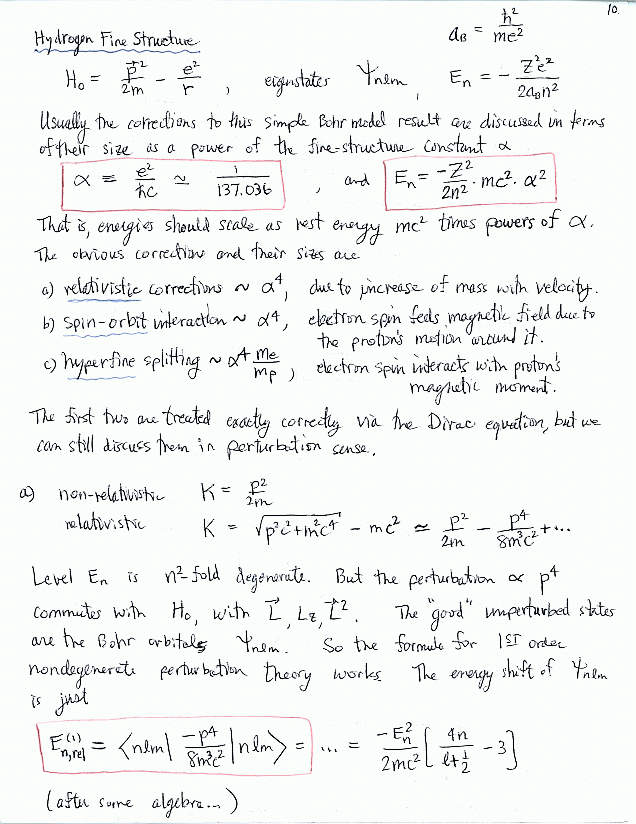 10.
Hydrogen Fine Structure
a_B = ħ²/me²
H₀ = p⃗²/2m − e²/r , eigenstates Ψnlm , En = − Z²e²/2a_Bn²
Usually the corrections to this simple Bohr model result are discussed in terms
of their size as a power of the fine-structure constant α
α ≡ e²/ħc ≃ 1/137.036 , and En = −Z²/2n² · mc² · α²
That is, energies should scale as rest energy mc² times powers of α.
The obvious corrections and their sizes are
a) relativistic corrections ~ α⁴, due to increase of mass with velocity.
b) spin-orbit interaction ~ α⁴, electron spin feels magnetic field due to
the proton's motion around it.
c) hyperfine splitting ~ α⁴ me/mp , electron spin interacts with proton's
magnetic moment.
The first two are treated exactly correctly via the Dirac equation, but we
can still discuss them in perturbation sense.
a) non-relativistic K = p²/2m
relativistic K = √(p²c²+m²c⁴) − mc² ≃ p²/2m − p⁴/8m³c² + ...
Level En is n²-fold degenerate. But the perturbation ∝ p⁴
commutes with H₀, with L⃗, Lz, L⃗². The "good" unperturbed states
are the Bohr orbitals Ψnlm. So the formula for 1ST order
nondegenerate perturbation theory works. The energy shift of Ψnlm
is just
E⁽¹⁾n,rel = ⟨nlm| −p⁴/8m³c² |nlm⟩ = ... = −En²/2mc² [ 4n/(l+½) − 3 ]
(after some algebra...)